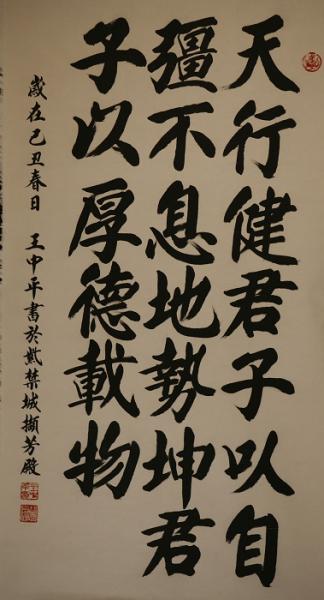 天行健君子以自
彊不息地勢坤君
子以厚德載物
歲在己丑春日 王中平書於紫禁城擷芳殿